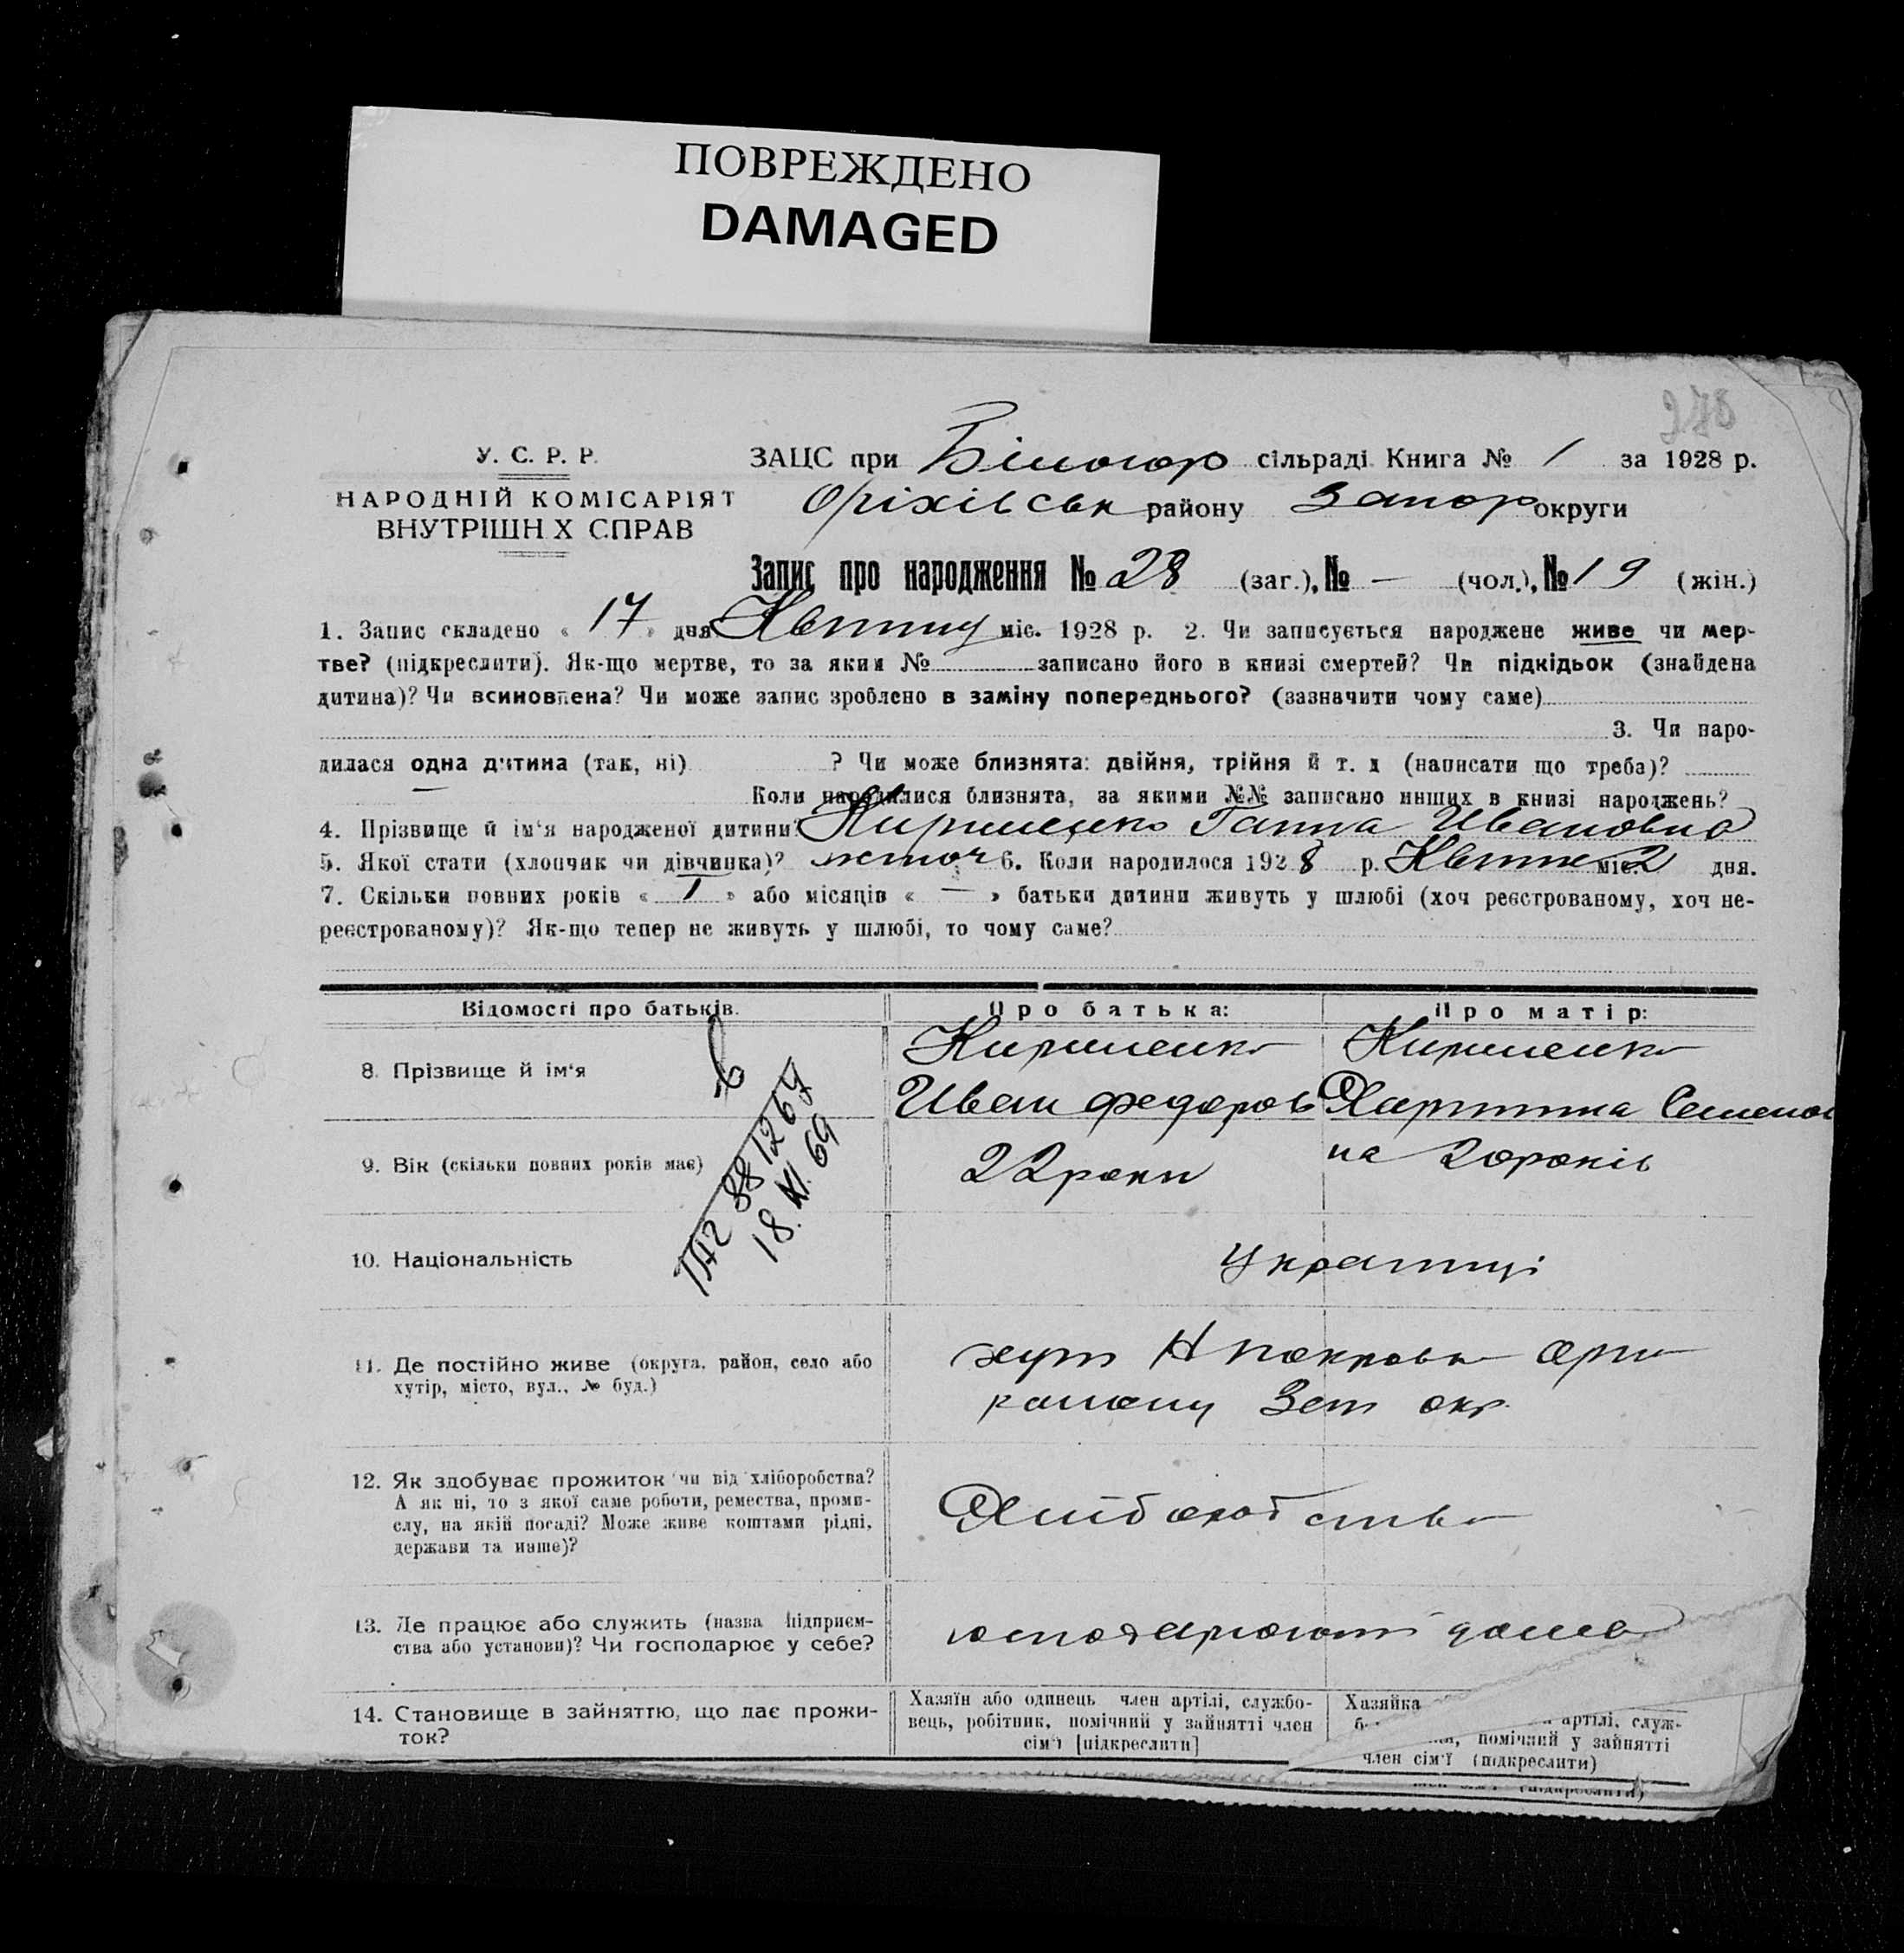 ПОВРЕЖДЕНО
DAMAGED
278
У. С. Р. Р.
НАРОДНІЙ КОМІСАРІЯТ
ВНУТРІШН Х СПРАВ
ЗАЦС при Білогор сільраді Книга № 1 за 1928 р.
Оріхівськ району Запор округи
Запис про народження № 28 (заг.), № — (чол.), № 19 (жін.)
1. Запис складено « 17 » дня Квітня міс. 1928 р. 2. Чи записується народжене живе чи мер-
тве? (підкреслити). Як-що мертве, то за яким № записано його в книзі смертей? Чи підкідьок (знайдена
дитина)? Чи всиновлена? Чи може запис зроблено в заміну попереднього? (зазначити чому саме)
3. Чи наро-
дилася одна дитина (так, ні) ? Чи може близнята: двійня, трійня й т. д (написати що треба)?
Коли народилися близнята, за якими №№ записано инших в книзі народжень?
4. Прізвище й ім'я народженої дитини? Кириленко Ганна Ивановна
5. Якої стати (хлопчик чи дівчинка)? жіноч 6. Коли народилося 1928 р. Квітня міс. 2 дня.
7. Скільки повних років « 1 » або місяців « — » батьки дитини живуть у шлюбі (хоч реєстрованому, хоч не-
реєстрованому)? Як-що тепер не живуть у шлюбі, то чому саме?
Відомості про батьків. Про батька: Про матір:
8. Прізвище й ім'я Кириленко Кириленко
Иван Федоров Харитина Семенов
9. Вік (скільки повних років має) 22 роки на 20 років
18. XI. 69
10. Національність Українці
11. Де постійно живе (округа, район, село або
хутір, місто, вул., № буд.)
хут Н покровка Оріх
району Зап окр.
12. Як здобуває прожиток чи від хліборобства?
А як ні, то з якої саме роботи, ремества, проми-
слу, на якій посаді? Може живе коштами рідні,
держави та инше)?
Хліборобство
13. Де працює або служить (назва підприєм-
ства або установи)? Чи господарює у себе?
господарюють дома
14. Становище в зайняттю, що дає прожи-
ток?
Хазяїн або одинець член артілі, службо-
вець, робітник, помічний у зайнятті член
сім'ї [підкреслити]
Хазяйка
артілі, служ-
помічний у зайнятті
член сім'ї (підкреслити)